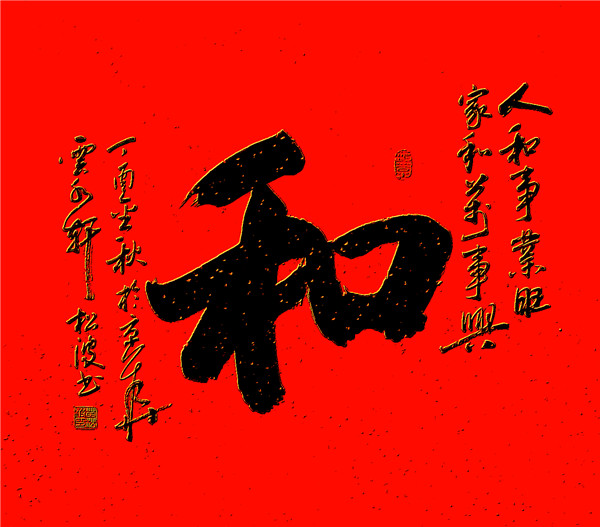 人和事業旺
家和萬事興
和
丁酉金秋於京華
雲水軒松波书